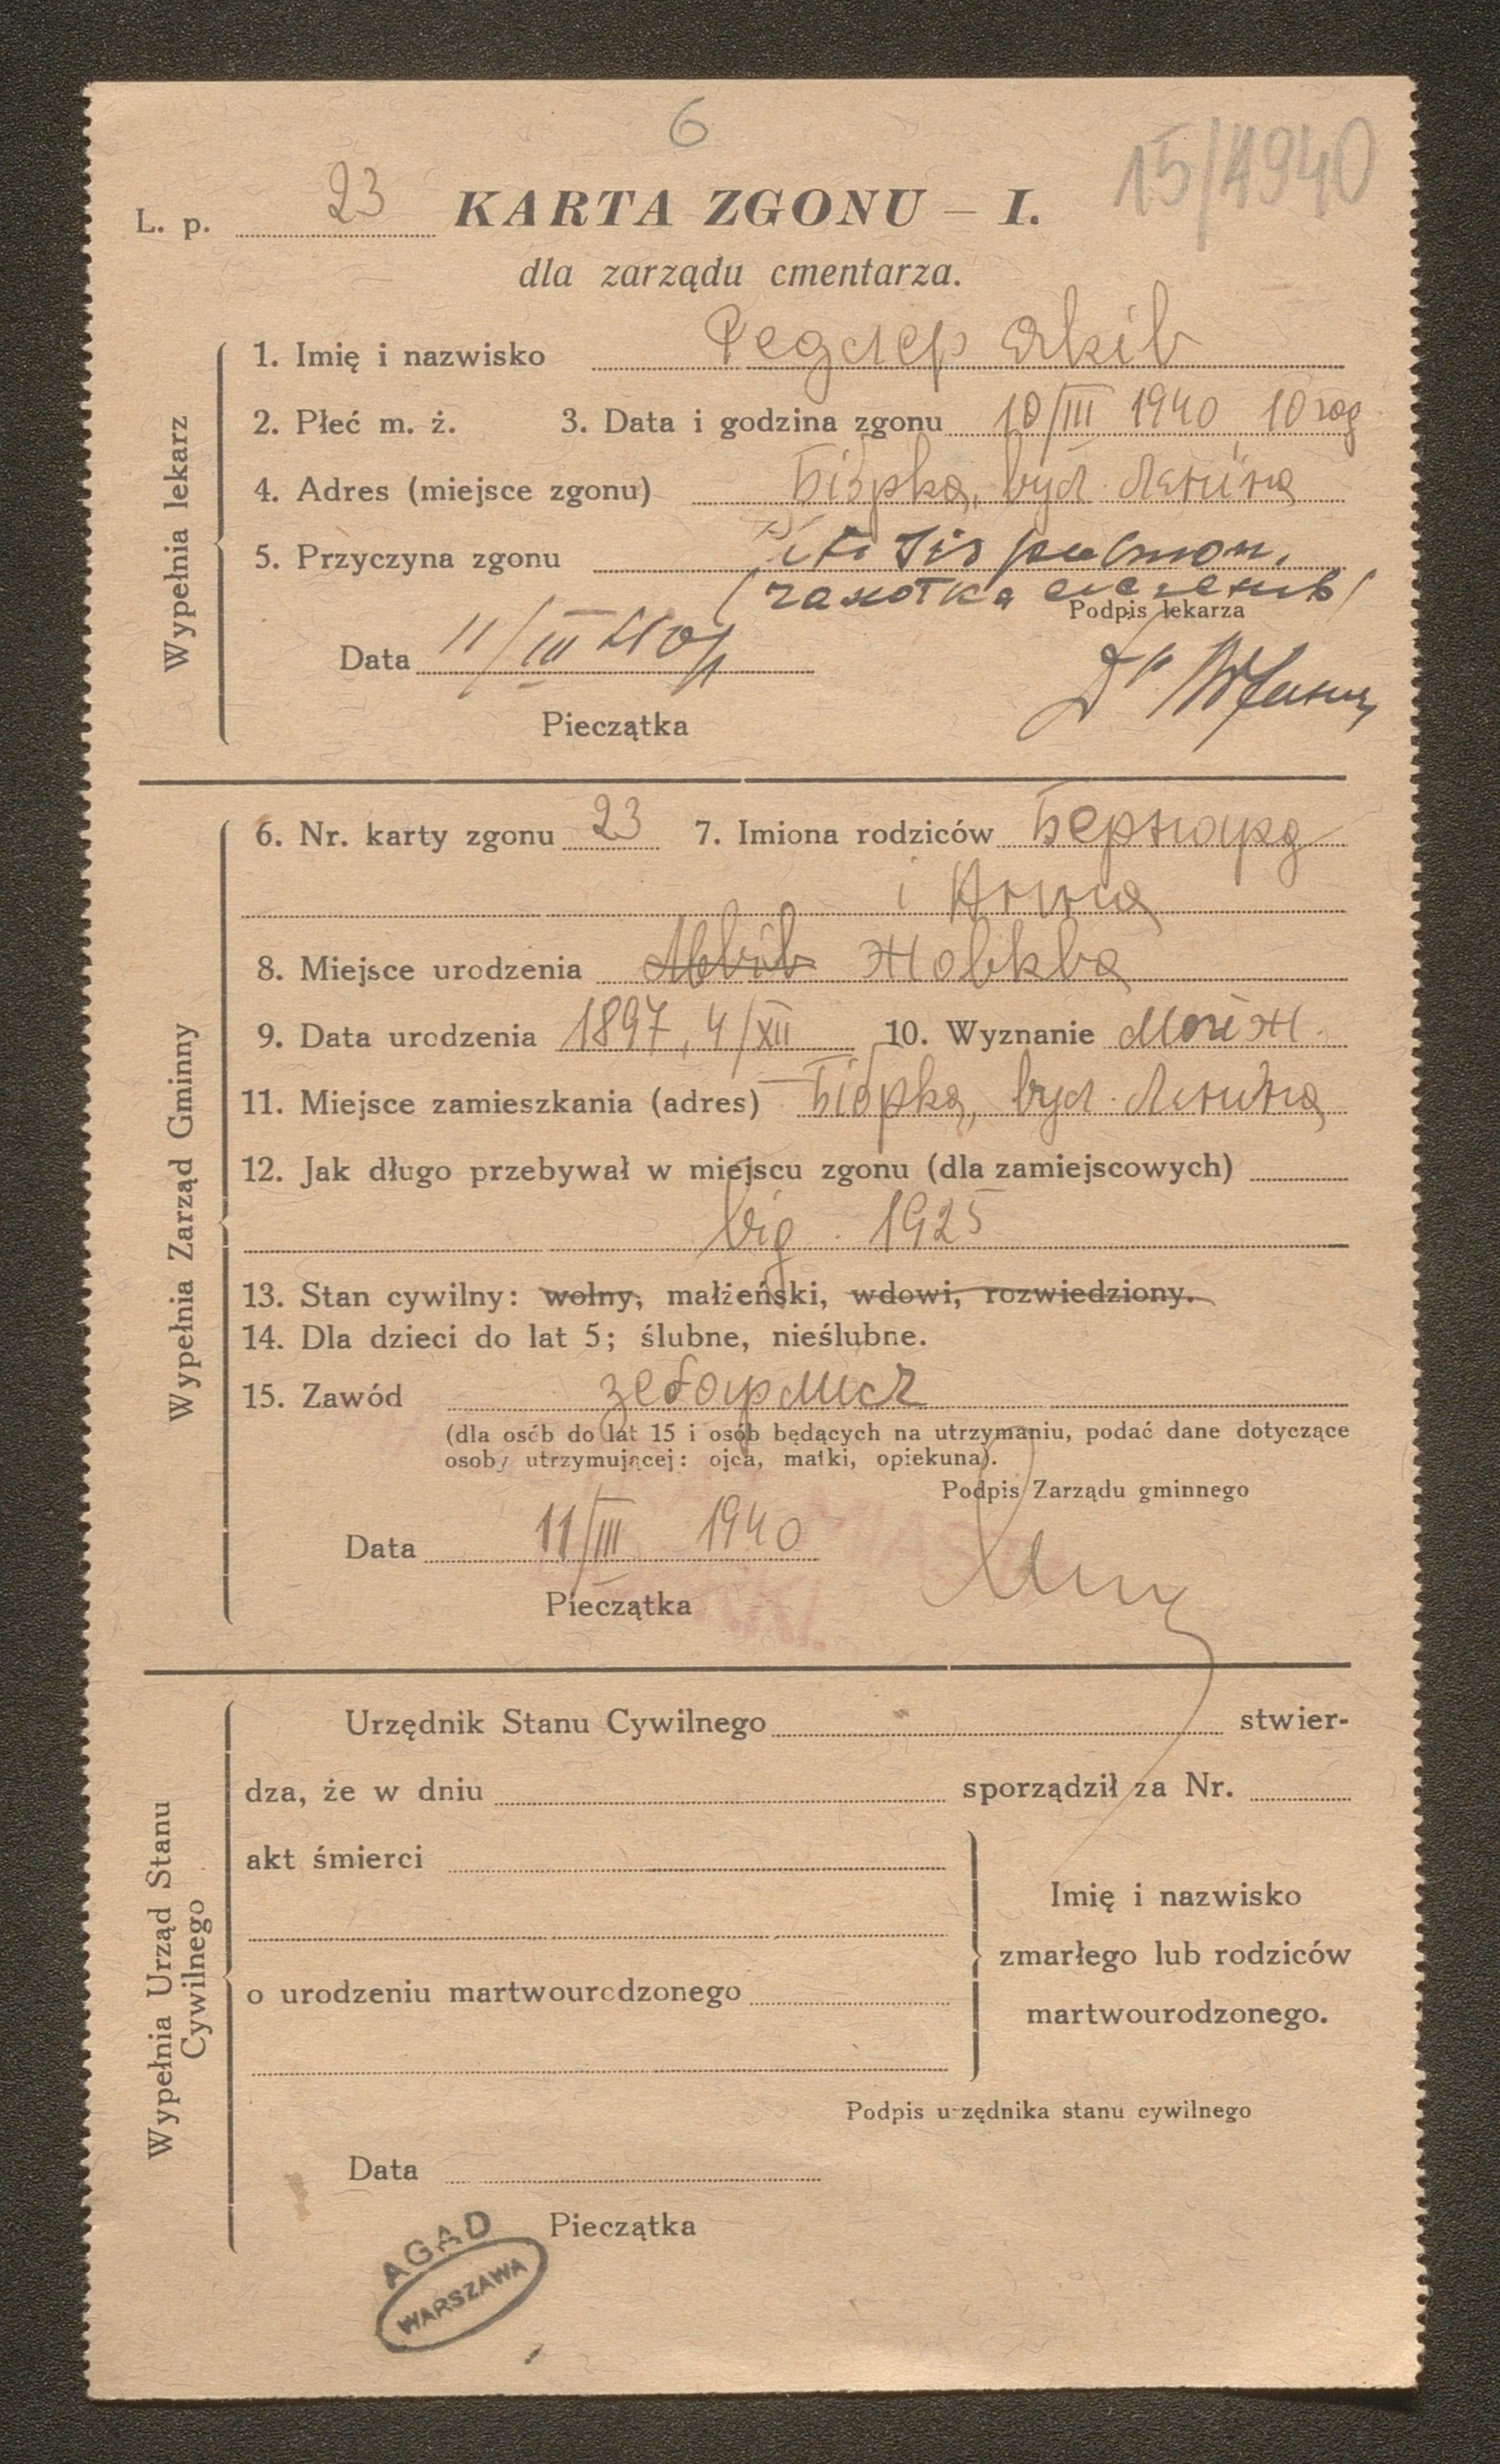 6
15/1940
L. p. 23 KARTA ZGONU – I.
dla zarządu cmentarza.
Wypełnia lekarz
1. Imię i nazwisko Редлер Яків
2. Płeć m. ż. 3. Data i godzina zgonu 10/III 1940 10 год
4. Adres (miejsce zgonu) Бібрка, вул. Леніна
5. Przyczyna zgonu pulmon.
Podpis lekarza
Data 11/III 40
Dr
Pieczątka
Wypełnia Zarząd Gminny
6. Nr. karty zgonu 23 7. Imiona rodziców Бернард
і Анна
8. Miejsce urodzenia Львів Жовква
9. Data urodzenia 1897, 4/XII 10. Wyznanie Мойж.
11. Miejsce zamieszkania (adres) Бібрка, вул. Леніна
12. Jak długo przebywał w miejscu zgonu (dla zamiejscowych)
від 1925
13. Stan cywilny: wolny, małżeński, wdowi, rozwiedziony.
14. Dla dzieci do lat 5; ślubne, nieślubne.
15. Zawód
(dla osób do lat 15 i osób będących na utrzymaniu, podać dane dotyczące
osoby utrzymującej: ojca, matki, opiekuna).
Podpis Zarządu gminnego
Data 11/III 1940
Pieczątka
Wypełnia Urząd Stanu
Cywilnego
Urzędnik Stanu Cywilnego stwier-
dza, że w dniu sporządził za Nr.
akt śmierci
Imię i nazwisko
zmarłego lub rodziców
o urodzeniu martwourodzonego
martwourodzonego.
Podpis urzędnika stanu cywilnego
Data
Pieczątka
AGAD
WARSZAWA